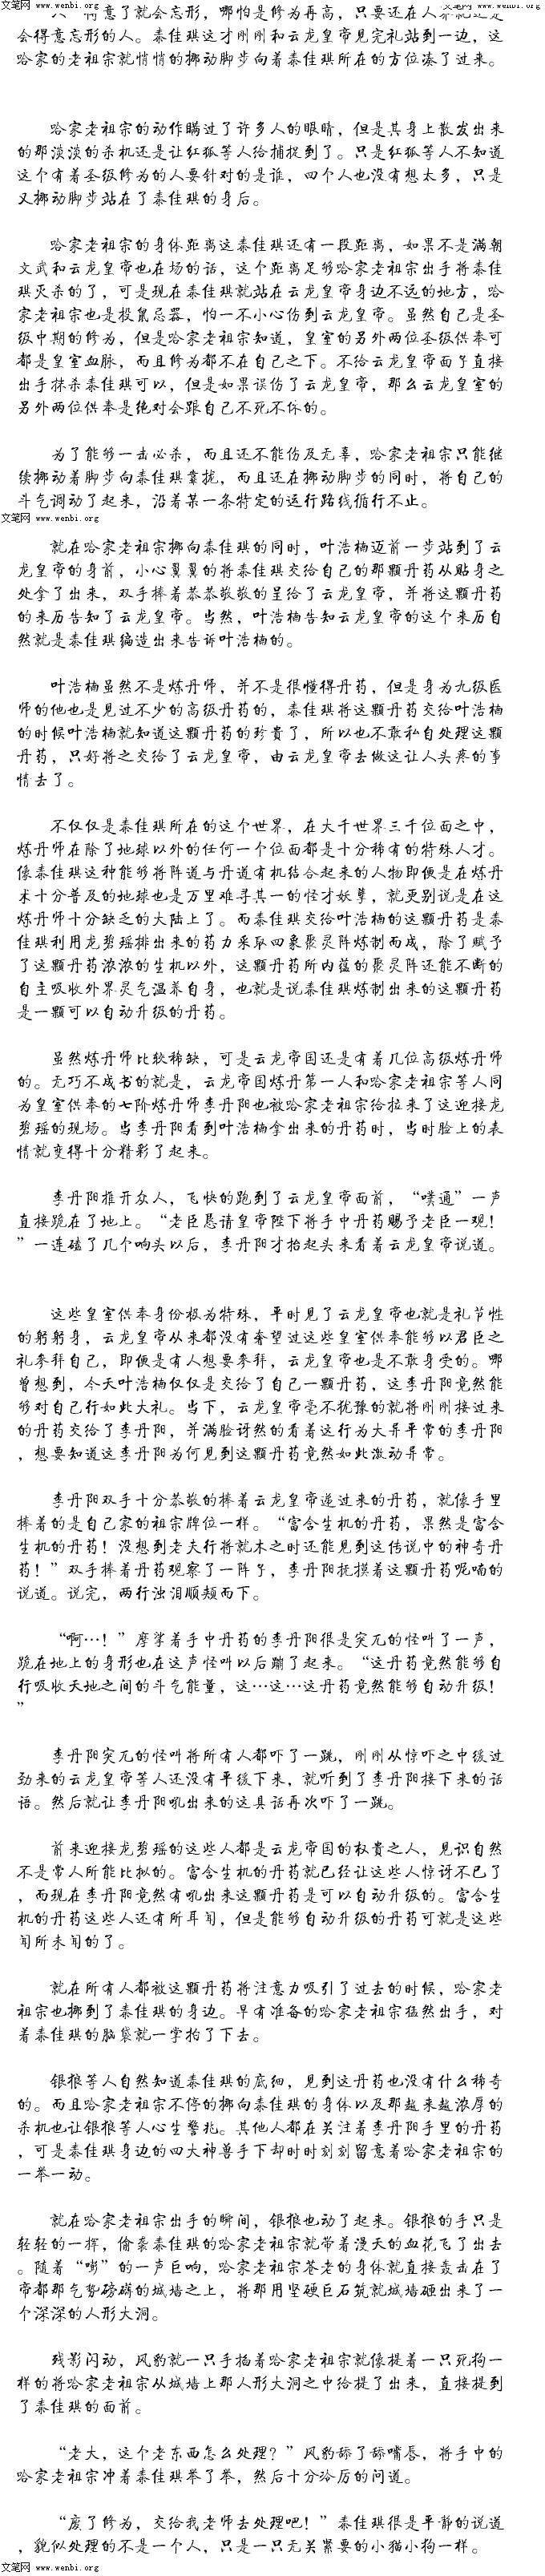 文笔网 www.wenbi.org 文笔网 www.wenbi.org
人一得意了就会忘形，哪怕是修为再高，只要还在人界就还是
会得意忘形的人。秦佳琪这才刚刚和云龙皇帝见完礼站到一边，这
哈家的老祖宗就悄悄的挪动脚步向着秦佳琪所在的方位凑了过来。
哈家老祖宗的动作瞒过了许多人的眼睛，但是其身上散发出来
的那淡淡的杀机还是让红狐等人给捕捉到了。只是红狐等人不知道
这个有着圣级修为的人要针对的是谁，四个人也没有想太多，只是
又挪动脚步站在了秦佳琪的身后。
哈家老祖宗的身体距离这秦佳琪还有一段距离，如果不是满朝
文武和云龙皇帝也在场的话，这个距离足够哈家老祖宗出手将秦佳
琪灭杀的了，可是现在秦佳琪就站在云龙皇帝身边不远的地方，哈
家老祖宗也是投鼠忌器，怕一不小心伤到云龙皇帝。虽然自己是圣
级中期的修为，但是哈家老祖宗知道，皇室的另外两位圣级供奉可
都是皇室血脉，而且修为都不在自己之下。不给云龙皇帝面子直接
出手抹杀秦佳琪可以，但是如果误伤了云龙皇帝，那么云龙皇室的
另外两位供奉是绝对会跟自己不死不休的。
为了能够一击必杀，而且还不能伤及无辜，哈家老祖宗只能继
续挪动着脚步向秦佳琪靠拢，而且还在挪动脚步的同时，将自己的
斗气调动了起来，沿着某一条特定的运行路线循行不止。
文笔网 www.wenbi.org
就在哈家老祖宗挪向秦佳琪的同时，叶浩楠迈前一步站到了云
龙皇帝的身前，小心翼翼的将秦佳琪交给自己的那颗丹药从贴身之
处拿了出来，双手捧着恭恭敬敬的呈给了云龙皇帝，并将这颗丹药
的来历告知了云龙皇帝。当然，叶浩楠告知云龙皇帝的这个来历自
然就是秦佳琪编造出来告诉叶浩楠的。
叶浩楠虽然不是炼丹师，并不是很懂得丹药，但是身为九级医
师的他也是见过不少的高级丹药的，秦佳琪将这颗丹药交给叶浩楠
的时候叶浩楠就知道这颗丹药的珍贵了，所以也不敢私自处理这颗
丹药，只好将之交给了云龙皇帝，由云龙皇帝去做这让人头疼的事
情去了。
不仅仅是秦佳琪所在的这个世界，在大千世界三千位面之中，
炼丹师在除了地球以外的任何一个位面都是十分稀有的特殊人才。
像秦佳琪这种能够将阵道与丹道有机结合起来的人物即便是在炼丹
术十分普及的地球也是万里难寻其一的怪才妖孽，就更别说是在这
炼丹师十分缺乏的大陆上了。而秦佳琪交给叶浩楠的这颗丹药是秦
佳琪利用龙碧瑶排出来的药力采取四象聚灵阵炼制而成，除了赋予
了这颗丹药浓浓的生机以外，这颗丹药所内蕴的聚灵阵还能不断的
自主吸收外界灵气温养自身，也就是说秦佳琪炼制出来的这颗丹药
是一颗可以自动升级的丹药。
虽然炼丹师比较稀缺，可是云龙帝国还是有着几位高级炼丹师
的。无巧不成书的就是，云龙帝国炼丹第一人和哈家老祖宗等人同
为皇室供奉的七阶炼丹师李丹阳也被哈家老祖宗给拉来了这迎接龙
碧瑶的现场。当李丹阳看到叶浩楠拿出来的丹药时，当时脸上的表
情就变得十分精彩了起来。
李丹阳推开众人，飞快的跑到了云龙皇帝面前，“噗通”一声
直接跪在了地上。“老臣恳请皇帝陛下将手中丹药赐予老臣一观！
”一连磕了几个响头以后，李丹阳才抬起头来看着云龙皇帝说道。
这些皇室供奉身份极为特殊，平时见了云龙皇帝也就是礼节性
的躬躬身，云龙皇帝从来都没有奢望过这些皇室供奉能够以君臣之
礼参拜自己，即便是有人想要参拜，云龙皇帝也是不敢身受的。哪
曾想到，今天叶浩楠仅仅是交给了自己一颗丹药，这李丹阳竟然能
够对自己行如此大礼。当下，云龙皇帝毫不犹豫的就将刚刚接过来
的丹药交给了李丹阳，并满脸讶然的看着这行为大异平常的李丹阳
，想要知道这李丹阳为何见到这颗丹药竟然如此激动异常。
李丹阳双手十分恭敬的捧着云龙皇帝递过来的丹药，就像手里
捧着的是自己家的祖宗牌位一样。“富含生机的丹药，果然是富含
生机的丹药！没想到老夫行将就木之时还能见到这传说中的神奇丹
药！”双手捧着丹药观察了一阵子，李丹阳抚摸着这颗丹药呢喃的
说道。说完，两行浊泪顺颊而下。
“啊…！”摩挲着手中丹药的李丹阳很是突兀的怪叫了一声，
跪在地上的身形也在这声怪叫以后蹦了起来。“这丹药竟然能够自
行吸收天地之间的斗气能量，这…这…这丹药竟然能够自动升级！
”
李丹阳突兀的怪叫将所有人都吓了一跳，刚刚从惊吓之中缓过
劲来的云龙皇帝等人还没有平缓下来，就听到了李丹阳接下来的话
语。然后就让李丹阳吼出来的这具话再次吓了一跳。
前来迎接龙碧瑶的这些人都是云龙帝国的权贵之人，见识自然
不是常人所能比拟的。富含生机的丹药就已经让这些人惊讶不已了
，而现在李丹阳竟然有吼出来这颗丹药是可以自动升级的。富含生
机的丹药这些人还有所耳闻，但是能够自动升级的丹药可就是这些
闻所未闻的了。
就在所有人都被这颗丹药将注意力吸引了过去的时候，哈家老
祖宗也挪到了秦佳琪的身边。早有准备的哈家老祖宗猛然出手，对
着秦佳琪的脑袋就一掌拍了下去。
银狼等人自然知道秦佳琪的底细，见到这丹药也没有什么稀奇
的。而且哈家老祖宗不停的挪向秦佳琪的身体以及那越来越浓厚的
杀机也让银狼等人心生警兆。其他人都在关注着李丹阳手里的丹药
，可是秦佳琪身边的四大神兽手下却时时刻刻留意着哈家老祖宗的
一举一动。
就在哈家老祖宗出手的瞬间，银狼也动了起来。银狼的手只是
轻轻的一挥，偷袭秦佳琪的哈家老祖宗就带着漫天的血花飞了出去
。随着“嘭”的一声巨响，哈家老祖宗苍老的身体就直接轰击在了
帝都那气势磅礴的城墙之上，将那用坚硬巨石筑就城墙砸出来了一
个深深的人形大洞。
残影闪动，风豹就一只手掐着哈家老祖宗就像提着一只死狗一
样的将哈家老祖宗从城墙上那人形大洞之中给提了出来，直接提到
了秦佳琪的面前。
“老大，这个老东西怎么处理？”风豹舔了舔嘴唇，将手中的
哈家老祖宗冲着秦佳琪举了举，然后十分冷厉的问道。
“废了修为，交给我老师去处理吧！”秦佳琪很是平静的说道
，貌似处理的不是一个人，只是一只无关紧要的小猫小狗一样。
文笔网 www.wenbi.org